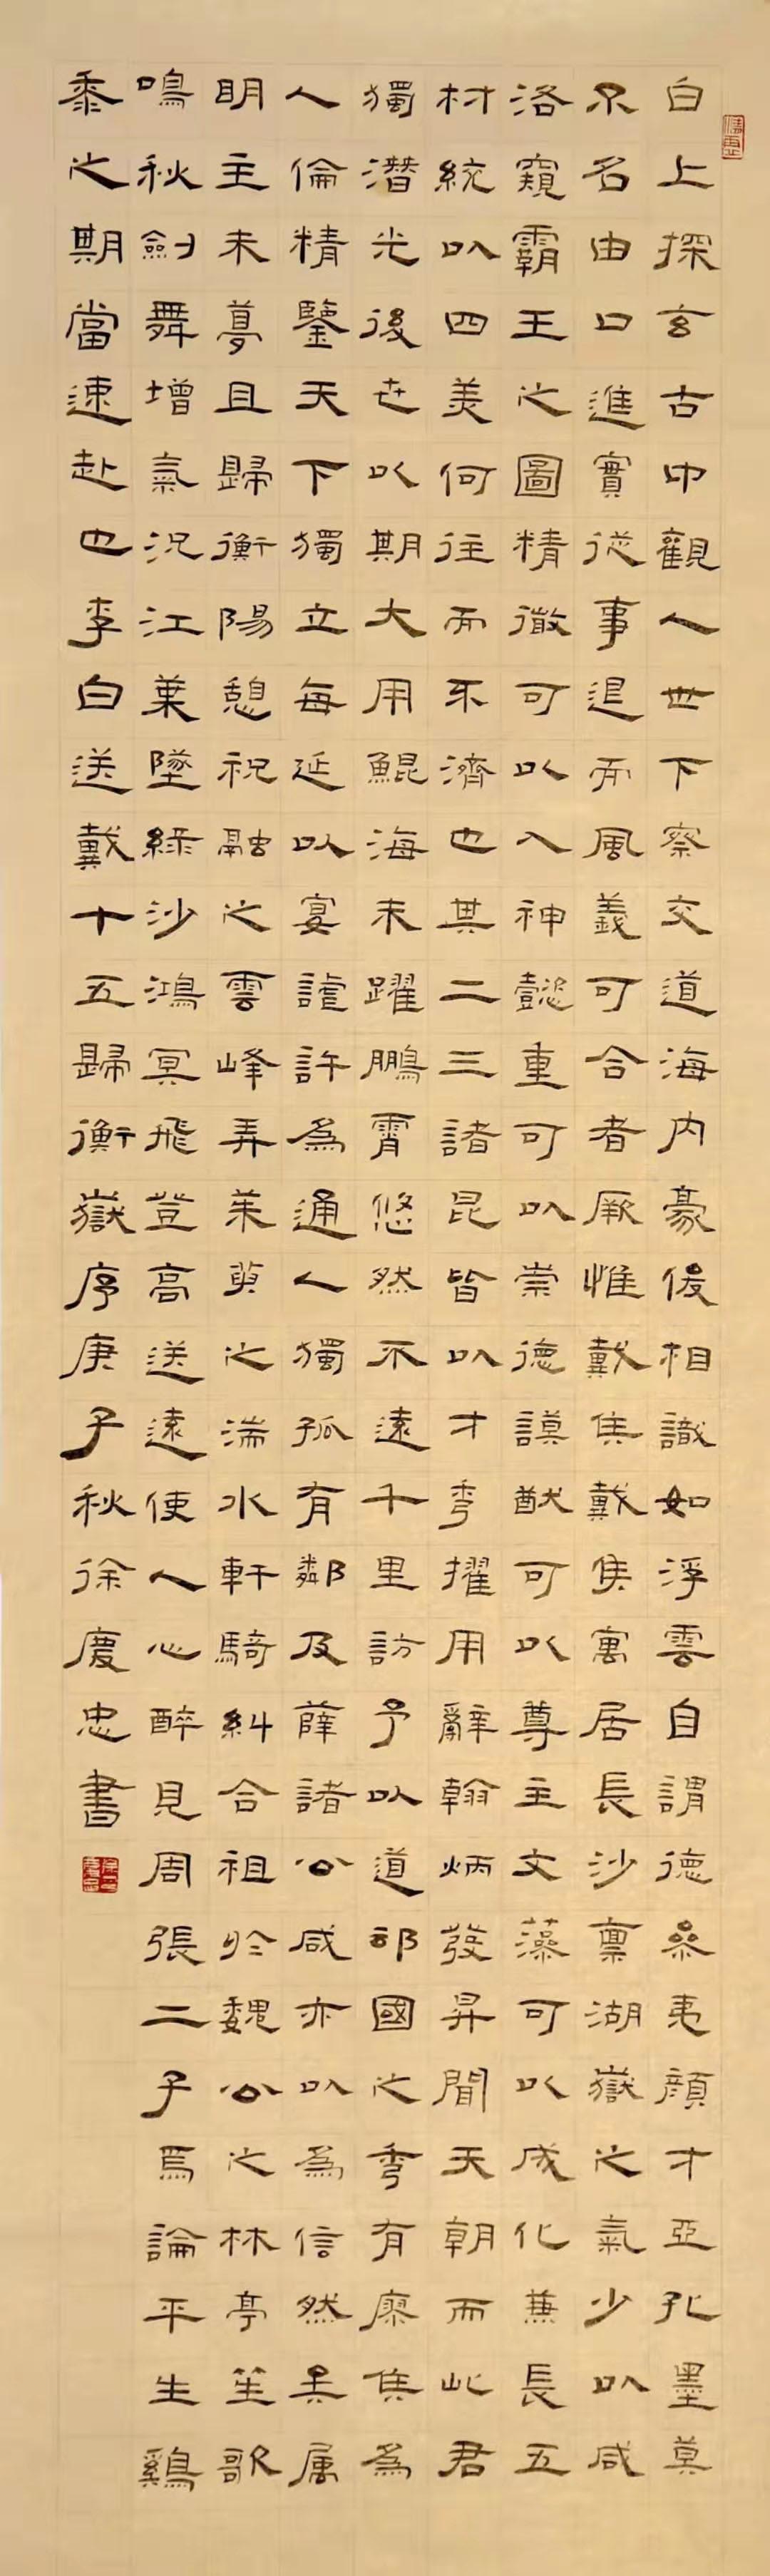 白上探玄古中觀人世下察交道海內豪俊相識如浮雲自謂德參夷顏才亞孔墨莫
不名由口進實從事退而風義可合者厥惟戴侯戴侯寓居長沙稟湖嶽之氣少以咸
洛窺霸王之圖精微可以入神懿重可以崇德謨猷可以尊主文藻可以成化兼長五
材統以四美何往而不濟也其二三諸昆皆以才秀擢用辭翰炳發昇聞天朝而此君
獨潛光後世以期大用鯤海未躍鵬霄悠然不遠千里訪予以道邵國之秀有廖侯為
人倫精鑒天下獨立每延以宴謔許為通人獨孤有鄰及薛諸公咸亦以為信然矣属
明主未夢且歸衡陽憩祝融之雲峰弄茱萸之湍水軒騎糾合祖於魏公之林亭笙歌
鳴秋劍舞增氣況江葉墜綠沙鴻冥飛登高送遠使人心醉見周張二子焉論平生鷄
黍之期當速赴也李白送戴十五歸衡嶽序庚子秋徐慶忠書